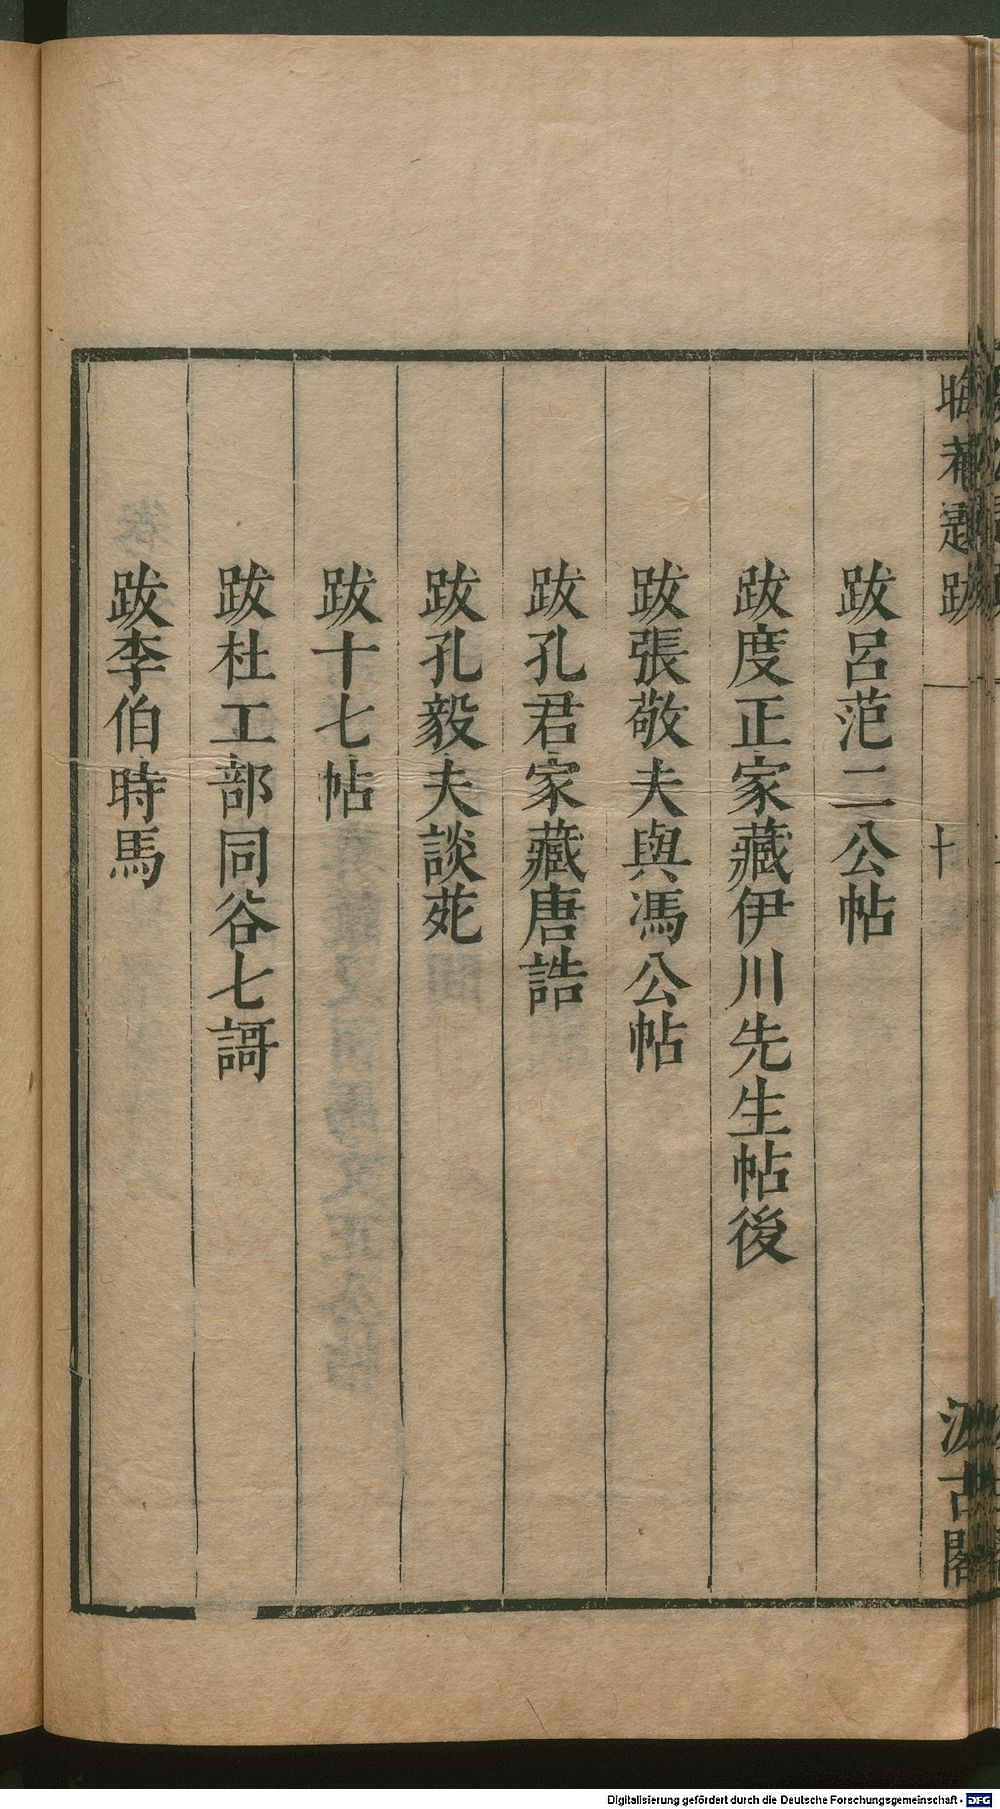 晦菴題跋
十
汲古閣
跋呂范二公帖
跋度正家藏伊川先生帖後
跋張敬夫與馮公帖
跋孔君家藏唐誥
跋孔毅夫談苑
跋十七帖
跋杜工部同谷七謌
跋李伯時馬
Digitalisierung gefördert durch die Deutsche Forschungsgemeinschaft - DFG